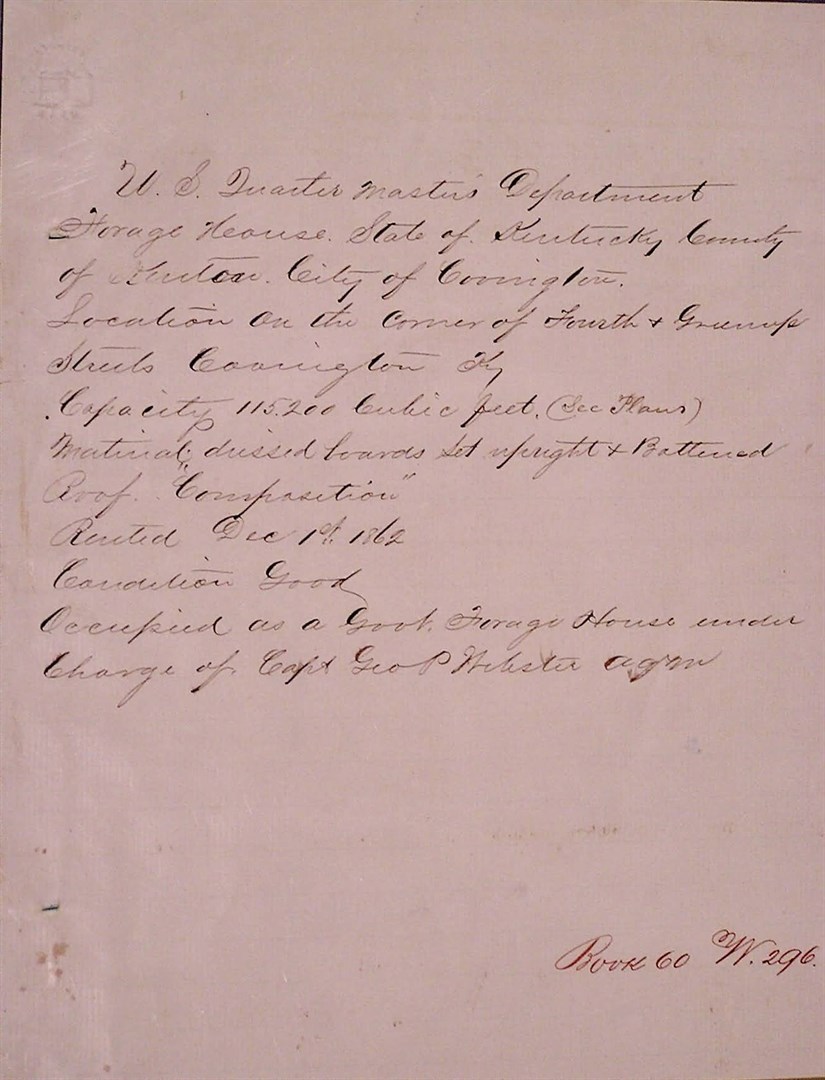 U. S. Quarter Master's Department
Forage House. State of Kentucky County
of Kenton. City of Covington.
Location On the corner of Fourth & Greenup
Streets Covington Ky
Capacity 115.200 Cubic feet. (See Plans)
Material; dressed boards set upright & Battened
Roof. "Composition"
Rented Dec 1st. 1862
Condition Good
Occupied as a Govt. Forage House under
Charge of Capt Geo P Webster aqm
Book 60 W. 296.